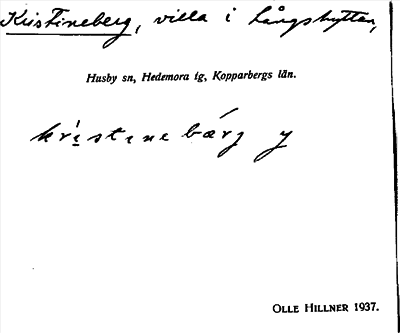 Kristineberg, villa i Långshyttan,
Husby sn, Hedemora tg, Kopparbergs län.
kri̲stinebärg y
OLLE HILLNER 1937.